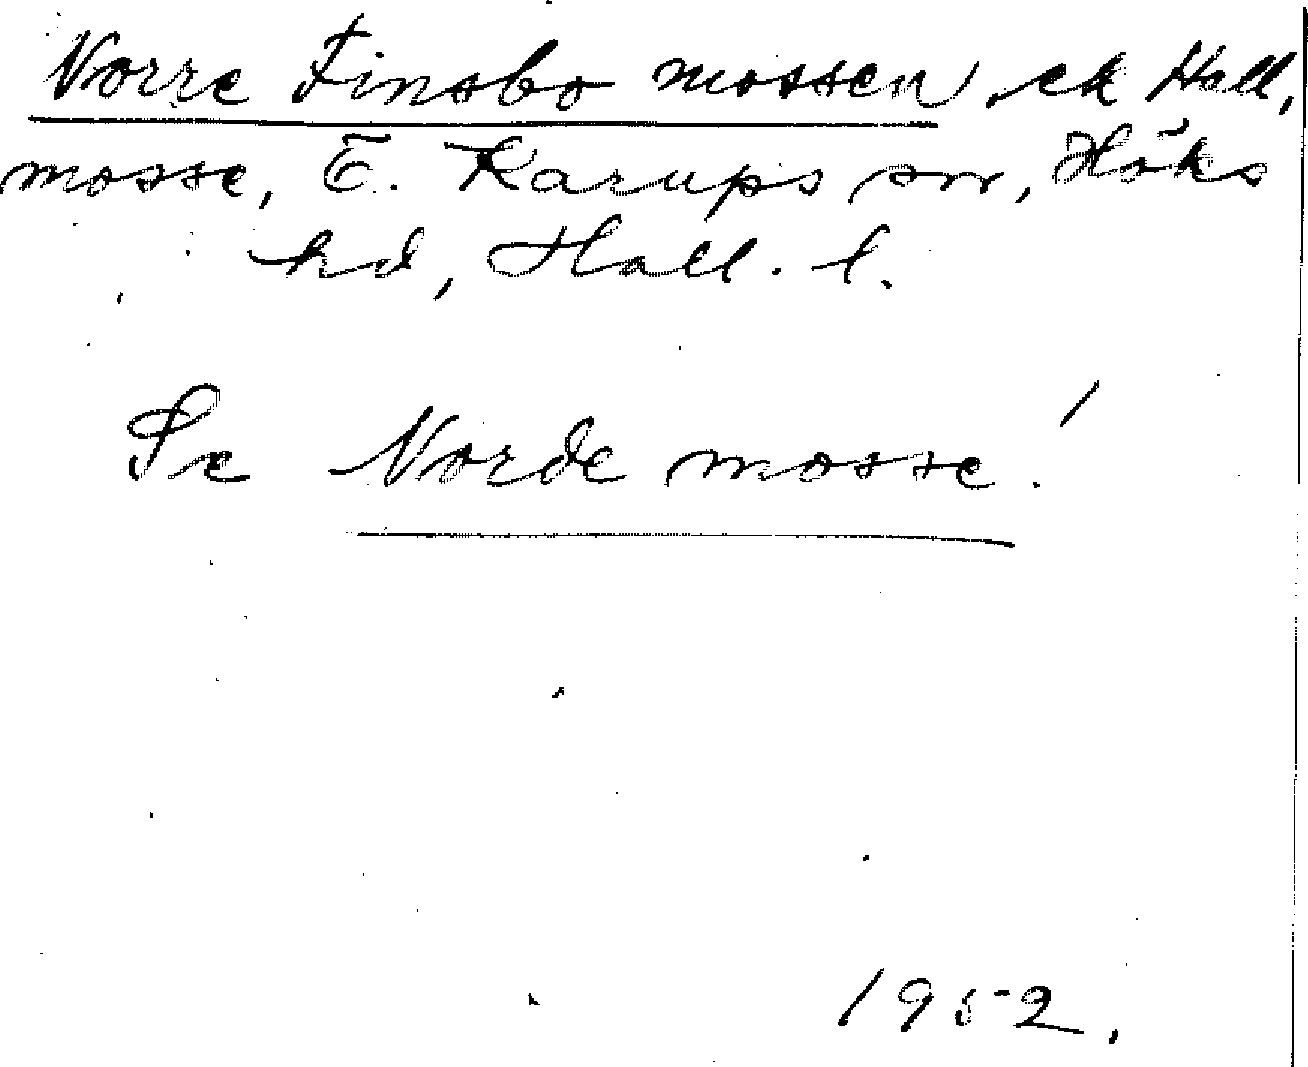 Norre Finsbo mossen, ek Hall,
mosse, Ö. Karups sn, Höks
hd, Hall. l.
Se Norde mosse!
1952.